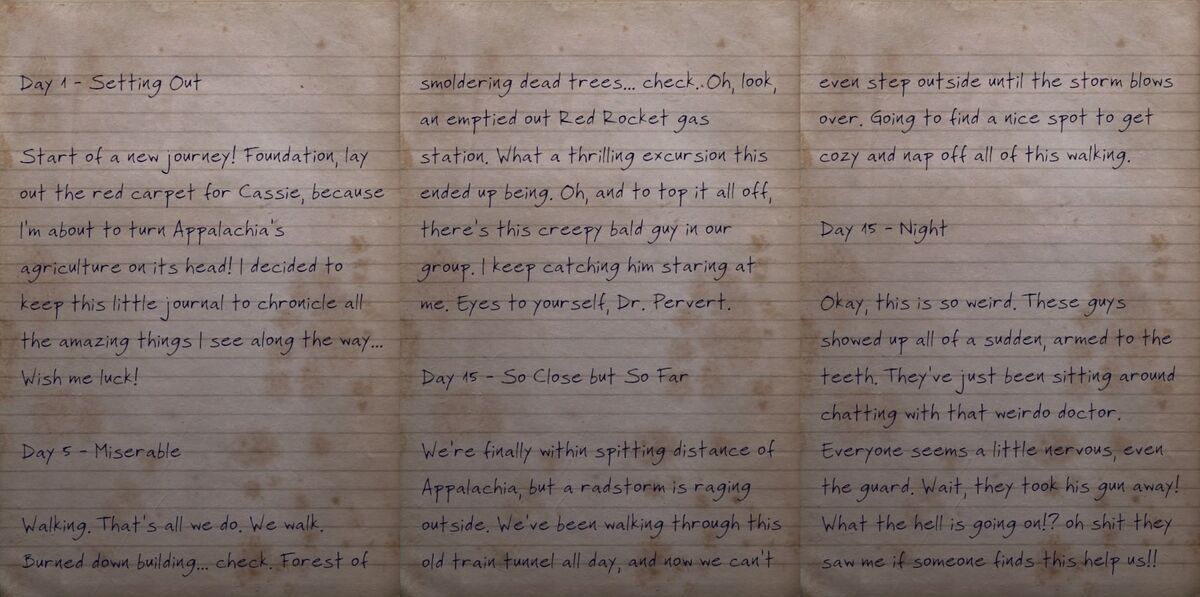 Day 1 - Setting Out
Start of a new journey! Foundation, lay
out the red carpet for Cassie, because
I'm about to turn Appalachia's
agriculture on its head! I decided to
keep this little journal to chronicle all
the amazing things I see along the way...
Wish me luck!
Day 5 - Miserable
Walking. That's all we do. We walk.
Burned down building... check. Forest of
smoldering dead trees... check. Oh, look,
an emptied out Red Rocket gas
station. What a thrilling excursion this
ended up being. Oh, and to top it all off,
there's this creepy bald guy in our
group. I keep catching him staring at
me. Eyes to yourself, Dr. Pervert.
Day 15 - So Close but So Far
We're finally within spitting distance of
Appalachia, but a radstorm is raging
outside. We've been walking through this
old train tunnel all day, and now we can't
even step outside until the storm blows
over. Going to find a nice spot to get
cozy and nap off all of this walking.
Day 15 - Night
Okay, this is so weird. These guys
showed up all of a sudden, armed to the
teeth. They've just been sitting around
chatting with that weirdo doctor.
Everyone seems a little nervous, even
the guard. Wait, they took his gun away!
What the hell is going on!? oh shit they
saw me if someone finds this help us!!